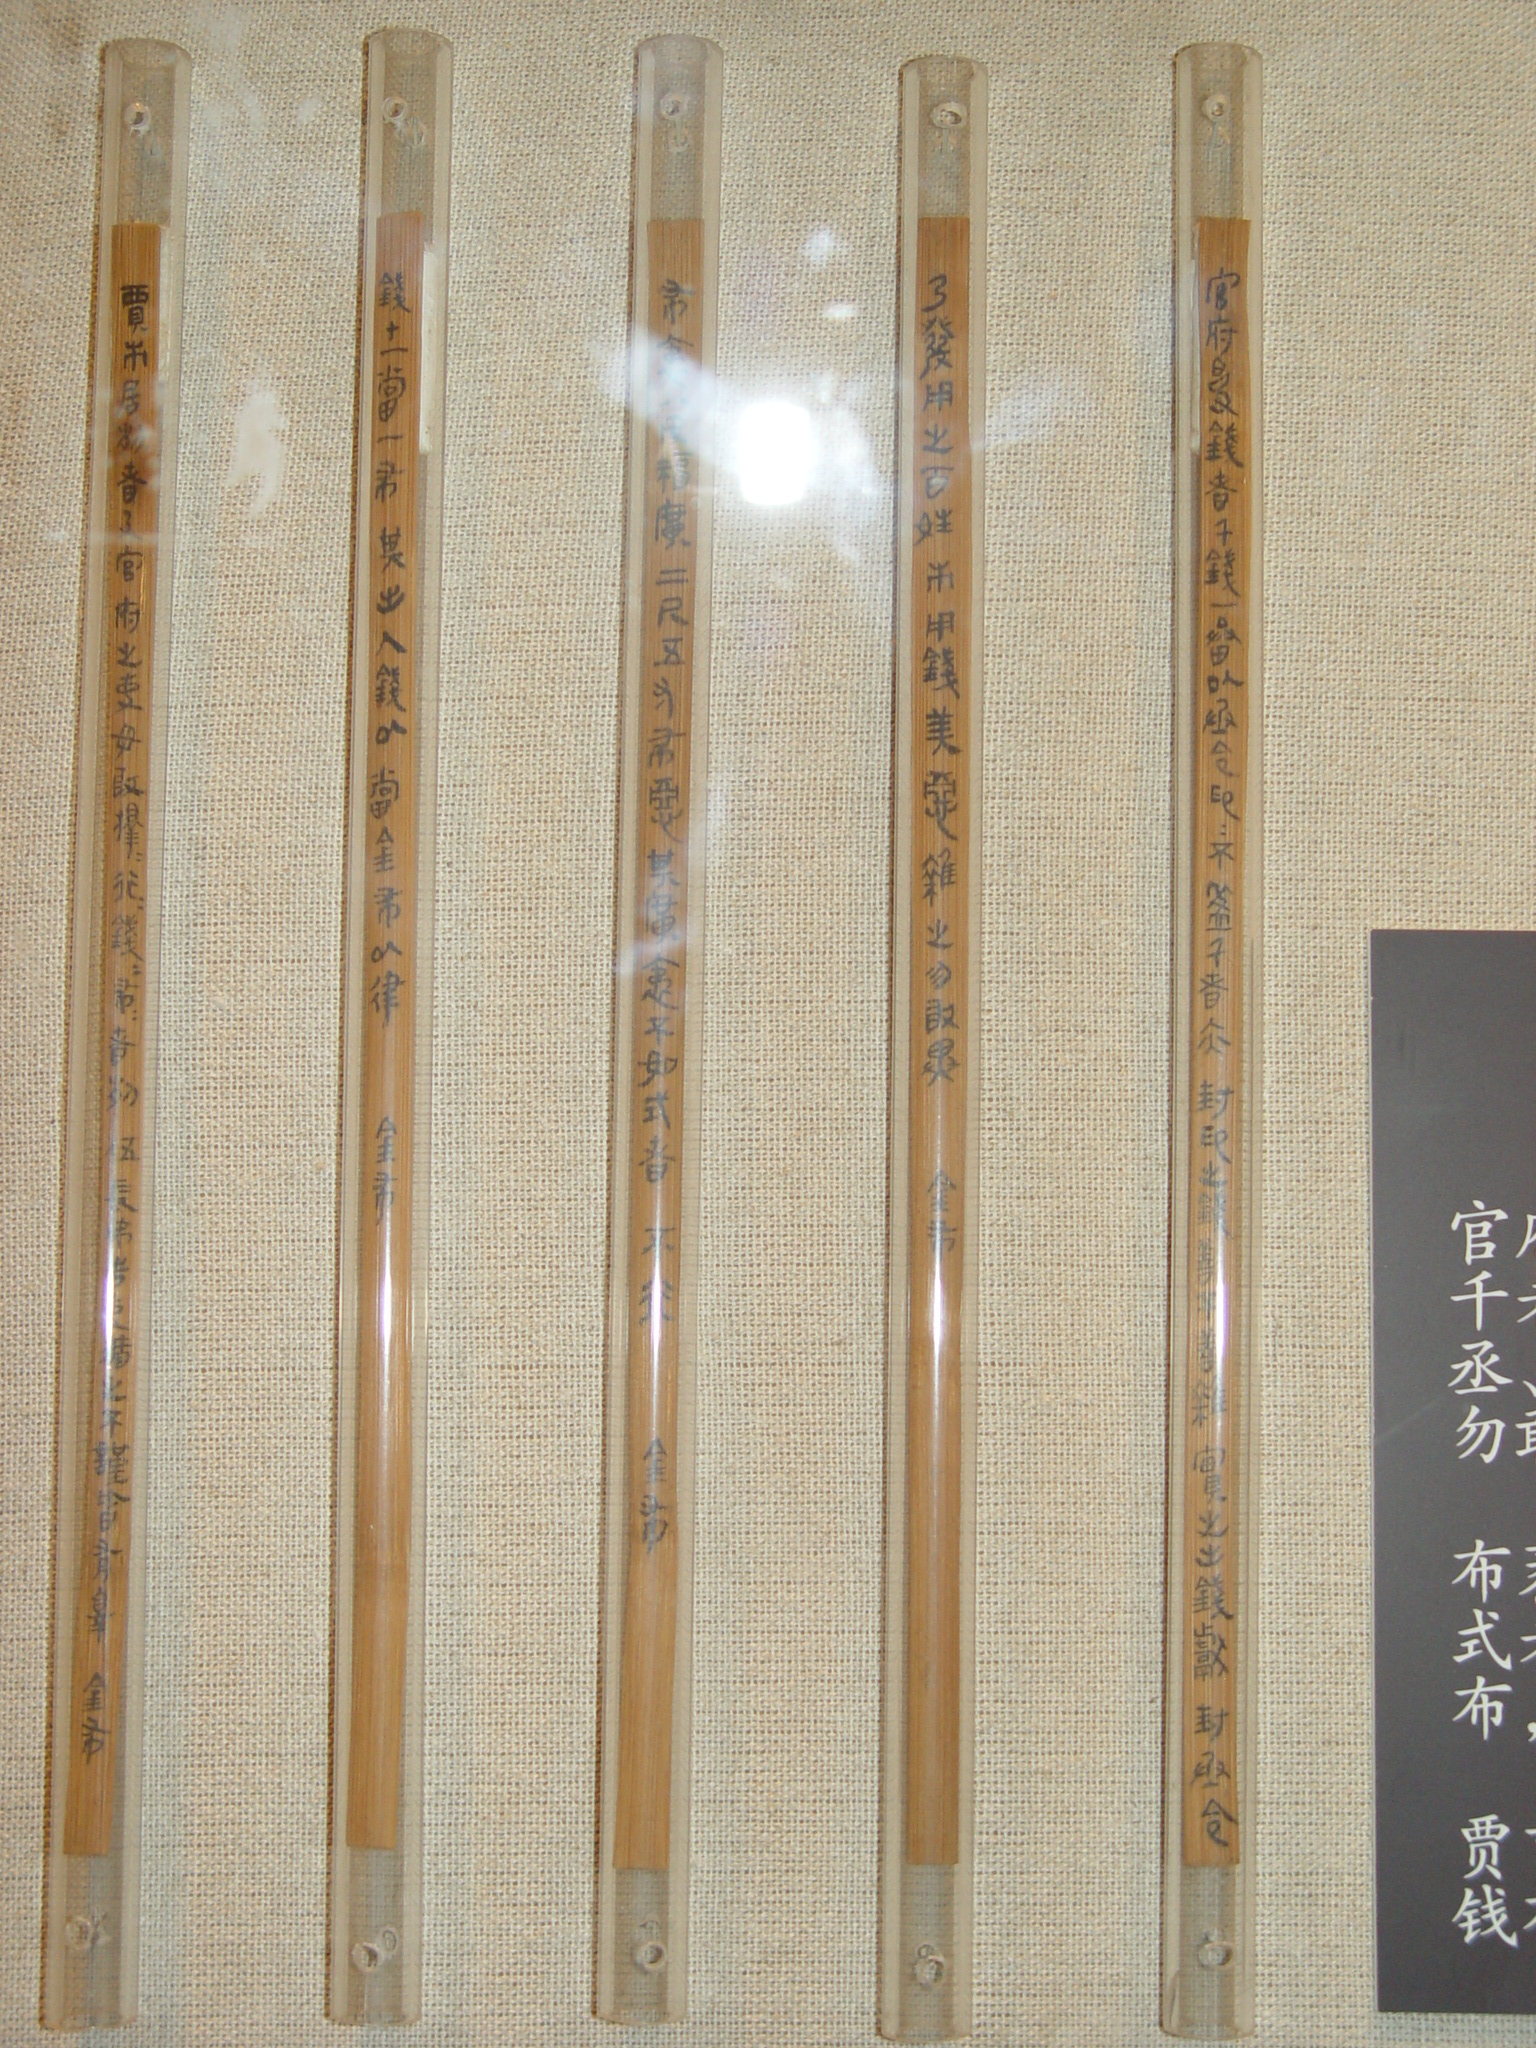 官府受錢者千錢一畚以丞令印=不盈千者亦封印之錢善不善雜實之出錢獻封丞令
乃發用之百姓市用錢美惡雜之勿敢異 金布
布袤八尺福廣二尺五寸布惡其廣袤不如式者不行 金布
錢十一當一布其出入錢以當金布以律 金布
賈市居列者及官府之吏毋敢擇=行=錢=布=者列伍長弗告吏循之不謹皆有辠 金布
官
千
丞
勿
布
式
布
贾
钱